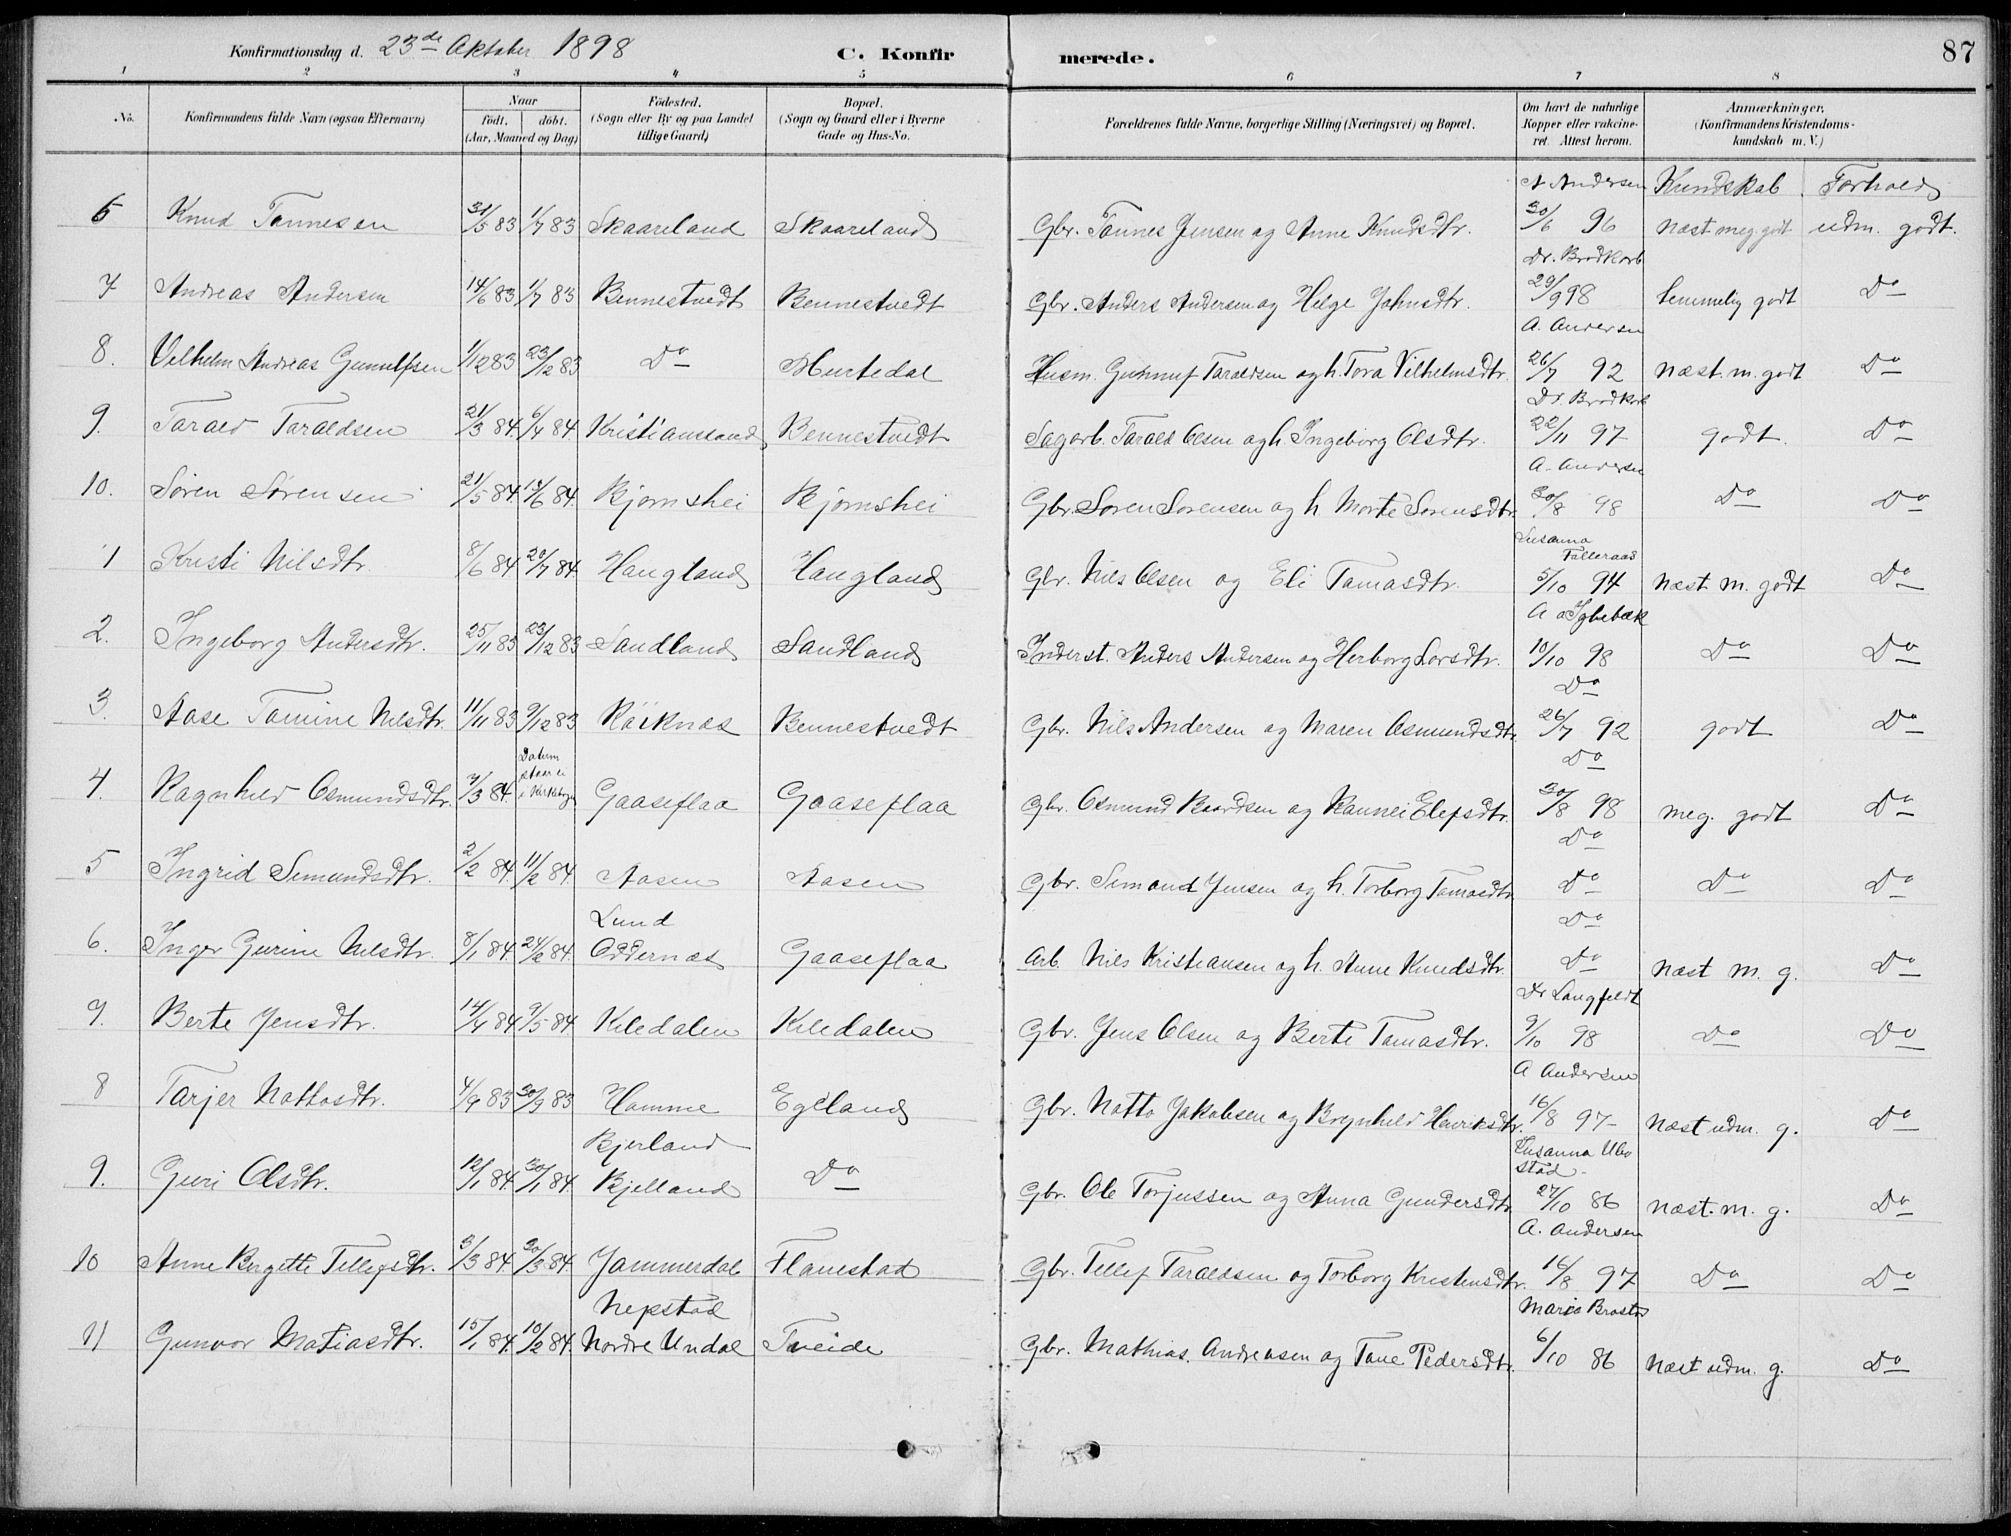 Konfirmationsdag d. 23de Oktober 1898 C. Konfirmerede. 87
1 2 3 4 5 6 7 8
No. Konfirmandens fulde Navn (ogsaa Efternavn) Naar födt. döbt. (Aar, Maaned og Dag) Födested. (Sogn eller By og paa Landet tillige Gaard) Bopæl. (Sogn og Gaard eller i Byerne Gade og Hus-No. Forældrenes fulde Navne, borgerlige Stilling (Næringsvei) og Bopæl. Om havt de naturlige Kopper eller vakcineret. Attest herom. Anmærkninger. (Konfirmandens Kristendomskundskab m. V.)
Kundskab Forhold
6 Knud Tønnesen 31/5 83 1/7 83 Skaareland Skaareland Gbr. Tønnes Jensen og Anne Knudsdtr. A Andersen 30/6 96 næst meg. godt udm. godt.
7 Andreas Andersen 14/6 83 1/7 83 Bennestvedt Bennestvedt Gbr. Anders Andersen og Helge Johnsdtr. Dr. Brodkorb 29/9 98 temmelig godt Do
8. Vilhelm Andreas Gunulfsen 1/12 83 23/12 83 Do Murtedal Husm. Gunnuf Taraldsen og h. Tora Vilhelmsdtr. A. Andersen 26/7 92 næst. m. godt Do
9. Tarald Taraldsen 21/3 84. 6/4 84. Kristiansand Bennestvedt Sagarb. Tarald Olsen og h. Ingeborg Olsdtr. Dr. Brodkorb 22/11 97 godt. Do
10. Søren Sørensen 21/5 84. 12/6 84. Bjørnshei Bjørnshei Gbr. Søren Sørensen og h Morte Sørensdtr. A. Andersen 30/8 98 Do Do
1 Kristi Nilsdtr. 8/6 84 20/7 84. Haugland Haugland Gbr. Nils Olsen og Eli Tomasdtr. Susanna Falleraas 5/10 94 næst m. godt Do
2. Ingeborg Andersdtr. 25/11 83 23/12 83 Sandland Sandland Inderst. Anders Andersen og Herborg Larsdtr. A Ighebæk 10/10 98 Do Do
3. Aase Tomine Nilsdtr. 11/11 83 9/12 83 Röiknæs Bennestvedt Gbr. Nils Andersen og Maren Osmundsdtr. Do 26/7 92 godt Do
4. Ragnhild Osmundsdtr. 7/3 84. Datum staar ei i Kirkebogen Gaaseflaa Gaaseflaa Gbr. Osmund Baardsen og Rannei Elefsdtr. Do 30/8 98 meg. godt Do
5 Ingrid Simundsdtr. 2/2 84. 11/2 84. Aasen Aasen Gbr. Simond Jensen og h. Torborg Tomasdtr. Do Do Do Do
6. Inger Gurine Nilsdtr. 8/1 84. 24/2 84. Lund Oddernæs Gaaseflaa Arb. Nils Kristiansen og h. Anne Knudsdtr. Do Do næst m. g. Do
7. Berte Jensdtr. 14/4 84 9/5 84 Kiledalen Kiledalen Gbr. Jens Olsen og Berte Tomasdtr. Dr Langfeldt 9/10 98 Do Do
8 Tarjer Nottosdtr. 4/9 83 30/9 83 Homme Egeland Gbr. Notto Jakobsen og Brynhild Henriksdtr. A Andersen 16/8 97 næst udm. g. Do
9. Guri Olsdtr. 12/1 84. 30/1 84. Bjerland Bjelland Do Gbr. Ole Torjussen og Anna Gundersdtr. Susanna Ubostad 27/10 86 næst. m. g. Do
10 Anne Bergitte Tellefsdtr. 3/3 84. 20/3 84. Jammerdal Flanestad Gbr. Tellef Taraldsen og Torborg Kristensdtr. A. Andersen 16/8 97 Do Do
11 Gunvor Matiasdtr. 15/1 84. 10/2 84. Nepstad Nordre Undal Tveide Gbr. Mathias Andreasen og Tone Pedersdtr. Maria 6/10 86 næst udm. g. Do